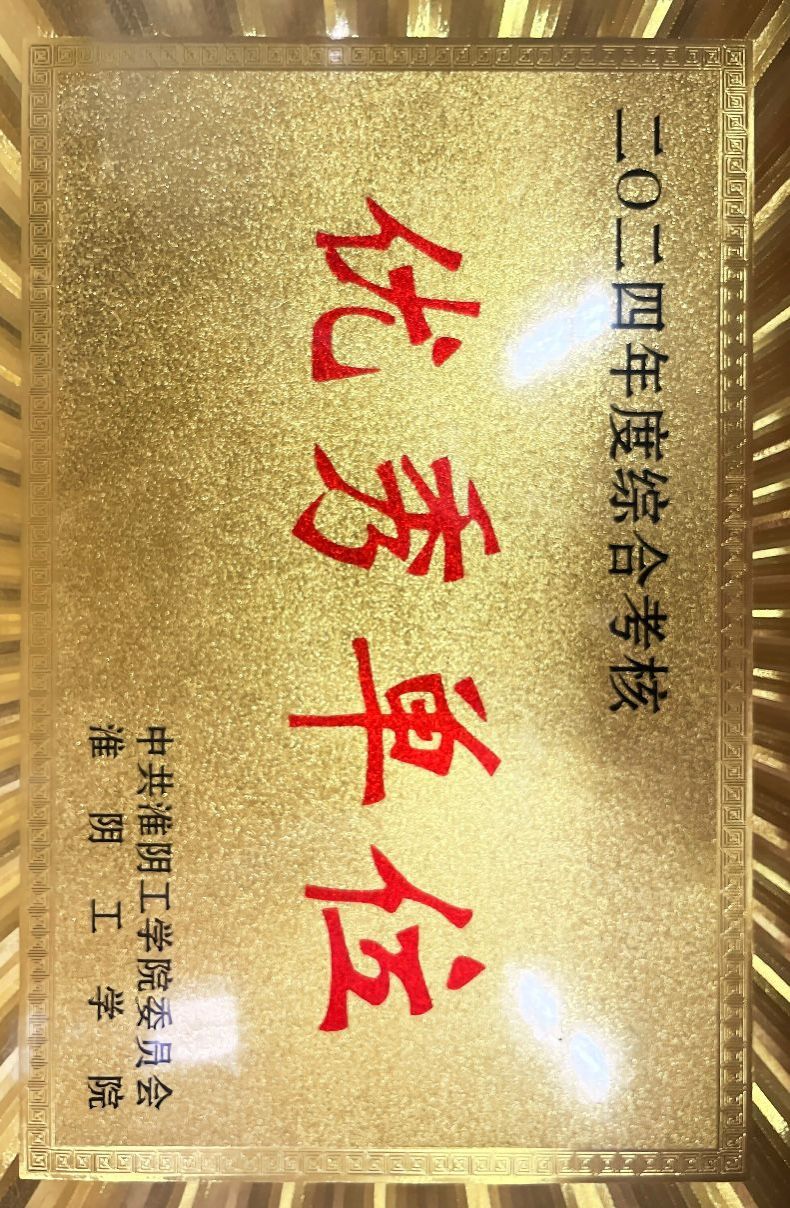 二〇二四年度综合考核
优秀单位
中共淮阴工学院委员会
淮阴工学院